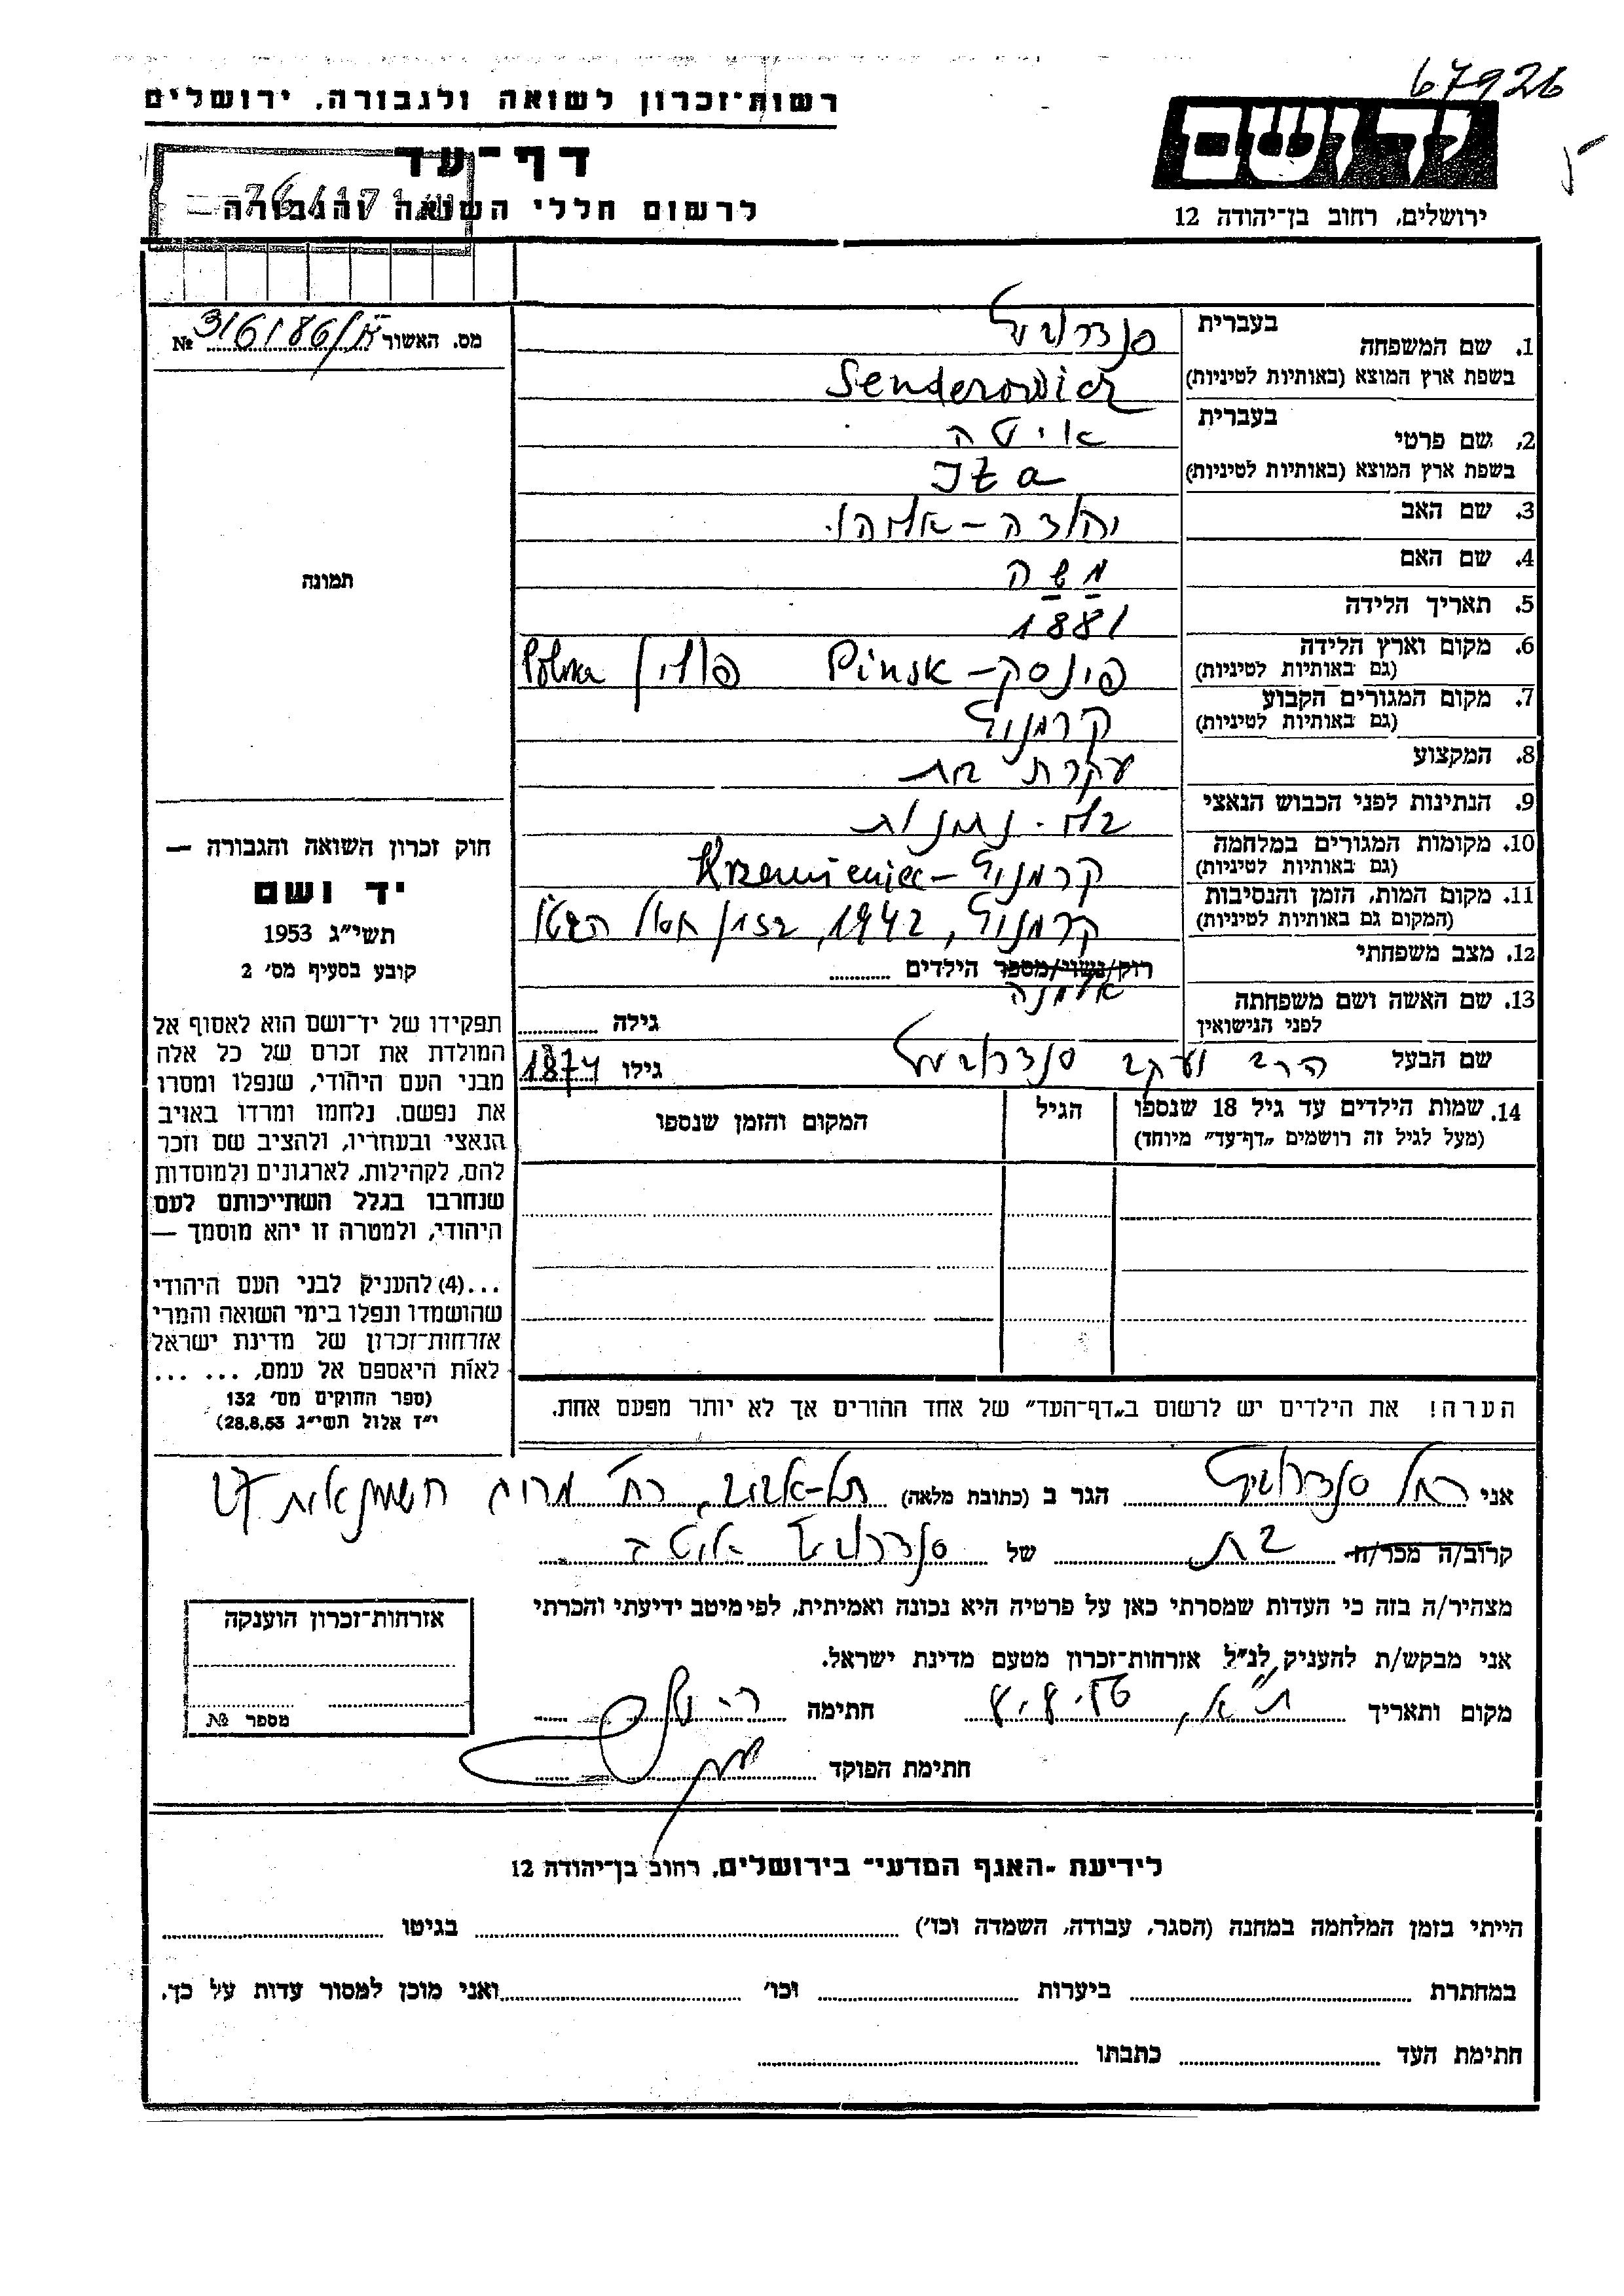 67926
רשות־זכרון לשואה ולגבורה. ירושלים
יד ושם
דף־עד
לרשום חללי השואה והגבורה
ירושלים, רחוב בן־יהודה 12
מס. האשור 316186/א №
1. שם המשפחה בעברית סנדרוביץ
בשפת ארץ המוצא (באותיות לטיניות) Senderowicz
2. שם פרטי בעברית איטה
בשפת ארץ המוצא (באותיות לטיניות) Iza
3. שם האב יהודה-אליהו
4. שם האם משה
5. תאריך הלידה 1881
6. מקום וארץ הלידה (גם באותיות לטיניות) פינסק - Pinsk פולין Polska
7. מקום המגורים הקבוע (גם באותיות לטיניות) קרמניץ
8. המקצוע עקרת בית
9. הנתינות לפני הכבוש הנאצי
10. מקומות המגורים במלחמה (גם באותיות לטיניות) קרמניץ - Krzemieniec
11. מקום המות, הזמן והנסיבות (המקום גם באותיות לטיניות) קרמניץ, 1942, בזמן חסול הגטו
12. מצב משפחתי רוק/נשוי/מספר הילדים
אלמנה
13. שם האשה ושם משפחתה לפני הנישואין גילה
שם הבעל הרב יעקב סנדרוביץ גילו 1874
14. שמות הילדים עד גיל 18 שנספו
(מעל לגיל זה רושמים „דף־עד" מיוחד)
הגיל
המקום והזמן שנספו
תמונה
חוק זכרון השואה והגבורה —
יד ושם
תשי"ג 1953
קובע בסעיף מס׳ 2
תפקידו של יד־ושם הוא לאסוף אל
המולדת את זכרם של כל אלה
מבני העם היהודי, שנפלו ומסרו
את נפשם. נלחמו ומרדו באויב
הנאצי ובעוזריו, ולהציב שם וזכר
להם, לקהילות, לארגונים ולמוסדות
שנחרבו בגלל השתייכותם לעם
היהודי, ולמטרה זו יהא מוסמך —
...(4) להעניק לבני העם היהודי
שהושמדו ונפלו בימי השואה והמרי
אזרחות־זכרון של מדינת ישראל
לאות היאספם אל עמם, ... ...
(ספר החוקים מס׳ 132
י"ז אלול תשי"ג 28.8.53)
הערה! את הילדים יש לרשום ב„דף־העד" של אחד ההורים אך לא יותר מפעם אחת.
אני רחל סנדרוביץ הגר ב (כתובת מלאה) תל-אביב, רח׳ חשמונאית
קרוב/ה מכר/ה בת של סנדרוביץ איטה
מצהיר/ה בזה כי העדות שמסרתי כאן על פרטיה היא נכונה ואמיתית, לפי מיטב ידיעתי והכרתי
אני מבקש/ת להעניק לנ"ל אזרחות־זכרון מטעם מדינת ישראל.
מקום ותאריך ת"א, 8.8. חתימה
חתימת הפוקד
אזרחות־זכרון הוענקה
מספר №
לידיעת -האגף המדעי- בירושלים, רחוב בן־יהודה 12
הייתי בזמן המלחמה במחנה (הסגר, עבודה, השמדה וכו׳) בגיטו
במחתרת ביערות וכו׳ ואני מוכן למסור עדות על כך.
חתימת העד כתבתו